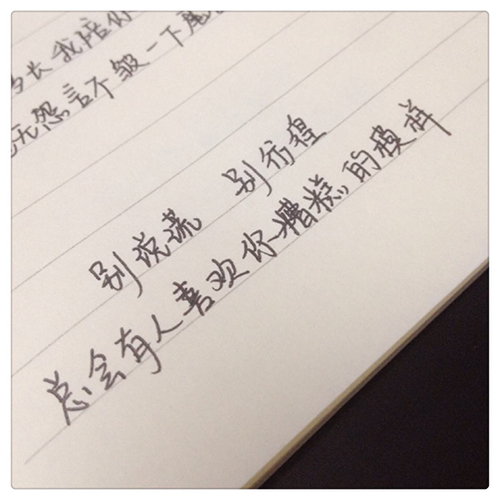 多长我陪你
无怨言不皱一下尾
别说谎 别彷徨
总会有人喜欢你糟糕的模样